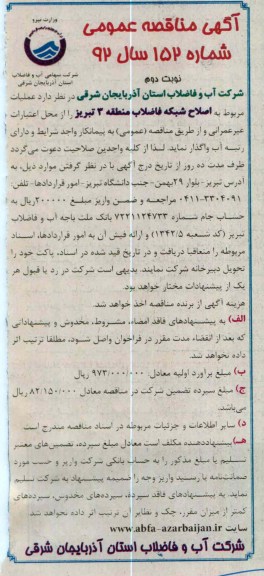 وزارت نیرو
آگهی مناقصه عمومی
شماره ۱۵۲ سال ۹۲
شرکت سهامی آب و فاضلاب
استان آذربایجان شرقی
نوبت دوم
شرکت آب و فاضلاب استان آذربایجان شرقی در نظر دارد عملیات
مربوط به اصلاح شبکه فاضلاب منطقه ۳ تبریز را از محل اعتبارات
غیرعمرانی و از طریق مناقصه (عمومی) به پیمانکار واجد شرایط و دارای
رتبه آب واگذار نماید. لذا از کلیه واجدین صلاحیت دعوت می‌گردد
ظرف مدت ده روز از تاریخ درج آگهی با در نظر گرفتن موارد ذیل، به
آدرس تبریز - بلوار ۲۹بهمن - جنب دانشگاه تبریز - امور قراردادها - تلفن:
۳۳۰۴۰۹۱-۰۴۱۱ مراجعه و ضمن واریز مبلغ ۲۰۰۰۰۰ریال به
حساب جام شماره ۷۲۲۱۱۲۴۷۳۳ بانک ملت باجه آب و فاضلاب
تبریز (کد شعبه ۱۳۴۲/۵) و ارائه فیش آن به امور قراردادها، اسناد
مربوطه را متعاقبا دریافت و در تاریخ قید شده در اسناد، پاکت خود را
تحویل دبیرخانه شرکت نمایند. بدیهی است شرکت در رد یا قبول هر
یک از پیشنهادات مختار خواهد بود.
هزینه آگهی از برنده مناقصه اخذ خواهد شد.
الف) به پیشنهادهای فاقد امضاء، مشروط، مخدوش و پیشنهاداتی
که بعد از انقضاء مدت مقرر در فراخوان واصل شود، مطلقا ترتیب اثر
داده نخواهد شد.
ب) مبلغ برآورد اولیه معادل ۹۷۳/۰۰۰/۰۰۰ ریال
ج) مبلغ سپرده تضمین شرکت در مناقصه معادل ۸۲/۱۵۰/۰۰۰ ریال
می‌باشد.
د) سایر اطلاعات و جزئیات مربوطه در اسناد مناقصه مندرج است
هـ) پیشنهاددهنده مکلف است معادل مبلغ سپرده، تضمین‌های معتبر
تسلیم یا مبلغ مذکور را به حساب بانکی شرکت واریز و حسب مورد
ضمانت‌نامه یا رسید واریز وجه را ضمیمه پیشنهاد به شرکت تسلیم
نماید. به پیشنهادهای فاقد سپرده، سپرده‌های مخدوش، سپرده‌های
کمتر از میزان مقرر، چک و نظایر آن ترتیب اثر داده نخواهد شد.
سایت www.abfa-azarbaijan.ir
شرکت آب و فاضلاب استان آذربایجان شرقی